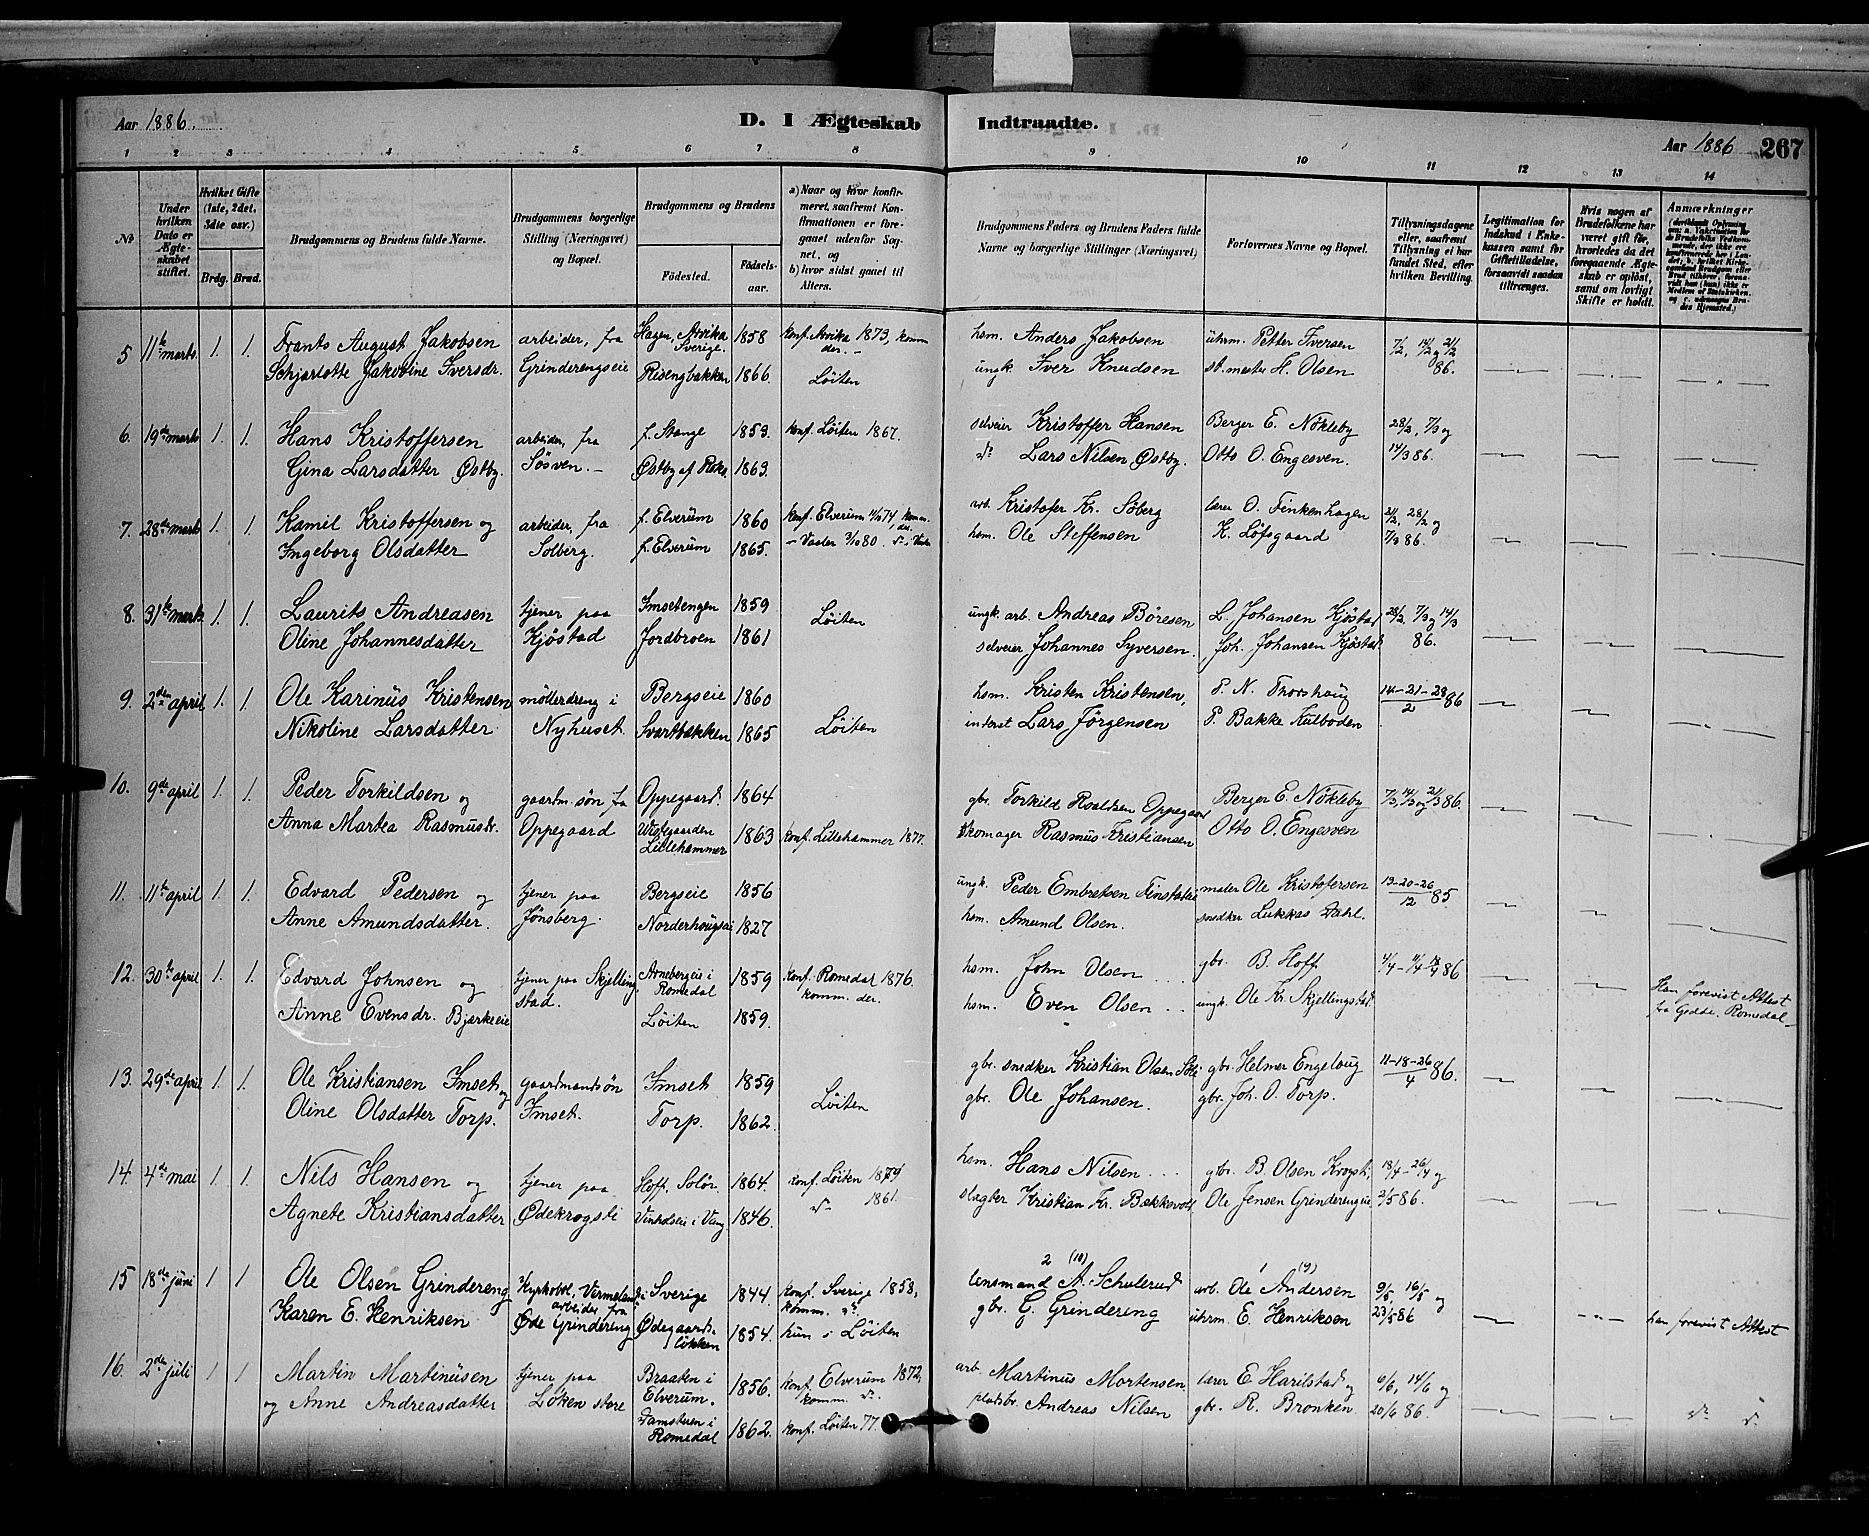 Aar 1886.
D. I Ægteskab Indtraadte.
Aar 1886 267
1 2 3 4 5 6 7 8 9 10 11 12 13 14
№
Under hvilken Dato er Ægteskabet stiftet.
Hvilket Gifte (1ste, 2det, 3die osv.)
Brdg. Brud.
Brudgommens og Brudens fulde Navne.
Brudgommens borgerlige Stilling (Næringsvei) og Bopæl.
Brudgommens og Brudens
Fødested. Fødselsaar.
a) Naar og hvor konfirmeret, saafremt Konfirmationen er foregaaet udenfor Sognet, og
b) hvor sidst gaaet til Alters.
Brudgommens Faders og Brudens Faders fulde Navne og borgerlige Stillinger (Næringsvei)
Forlovernes Navne og Bopæl.
Tillysningsdagene eller, saafremt Tillysning ei har fundet Sted, efter hvilken Bevilling.
Legitimation for Indskud i Enkekassen samt for Giftetilladelse, forsaavidt saadan tiltrænges.
Hvis nogen af Brudefolkene har været gift før, hvorledes da det foregaaende Ægteskab er opløst, samt om lovligt Skifte er holdt.
Anmærkninger
5 11te marts 1. 1. Frants August Jakobsen arbeider, fra Hagen, Arvika Sverige. 1858 konf. Arvika 1873, komm der. — hsm. Anders Jakobsen uhrm. Petter Iversen 7/2, 14/2 og 21/2
Schjarlotte Jakobine Iversdr. Grinderengseie Risengbakken 1866. Löiten ungk. Iver Knudsen st. mester H. Olsen 86.
6. 19de marts 1. 1. Hans Kristoffersen arbeider, fra f. Stange 1853. konf. Löiten 1867. selveier Kristoffer Hansen Berger E. Nökleby 28/2, 7/3 og
Gina Larsdatter Østby. Sösven. — Østby af Roko. 1863. do Lars Nilsen Østby. Otto O. Engesven. 14/3 86.
7. 28de marts 1. 1. Kamil Kristoffersen og arbeider, fra f. Elverum 1860 konf. Elverum 74, komm. der. arb. Kristofer Kr. Söberg lærer O. Finkenhagen 21/2, 28/2 og
Ingeborg Olsdatter Solberg. f. Elverum 1865. — Vaaler 3/10 80. do i Vaaler hsm. Ole Steffensen K. Löfsgaard 7/3 86.
8. 31te marts 1. 1. Laurits Andreasen tjener paa Imsetengen 1859 Löiten ungk. arb. Andreas Böresen L. Johansen Kjöstad 28/2, 7/3 og 14/3
Oline Johannesdatter Kjöstad Jordbroen 1861 selveier Johannes Syversen. Joh. Johansen Kjöstad. 86.
9. 2den april 1. 1. Ole Karinus Kristensen möllerdreng i Bergseie 1860 hsm. Kristen Kristensen, P. N. Thorshaug 14-21-28/2 86
Nikoline Larsdatter. Nyhuset. Svartbakken 1865 Löiten inderst Lars Jörgensen P. Bakke Kulboden
10. 9de april 1. 1. Peder Torkildsen og gaardm. sön fra Oppegaard. 1864 gbr. Torkild Roaldsen Oppegaard Berger E. Nökleby 7/3, 14/3 og 21/3 86.
Anna Martea Rasmusdr. Oppegaard Lillehammer 1863 konf. Lillehammer 1877. skomager Rasmus Kristiansen Otto O. Engesven
11. 11te april 1. 1. Edvard Pedersen og tjener paa Bergseie 1856 ungk. Peder Embretsen Finstadeie maler Ole Kristofersen 13-20-26/12 85
Anne Amundsdatter. Jönsberg. Norderhougseie 1827 hsm. Amund Olsen. snedker Lukkas Dahl.
12. 30te april 1. 1. Edvard Johnsen og tjener paa Skjellingstad. Arnebergeie i Romedal 1859 konf. Romedal 1876. komm. der. hsm. John Olsen gbr. B. Hoff 4/4 - 11/4 18/4 86
Anne Evensdr. Bjerkeeie Löiten 1859. hsm. Even Olsen ungk. Ole Kr. Skjellingstad Han forevist Attest fra Romedal —
13. 29de april 1. 1. Ole Kristiansen Imset og gaardmandsön Imset 1859 gbr. snedker Kristian Olsen gbr. Helmer Engelaug 11-18-26/4 86.
Oline Olsdatter Torp. Imset. Torp. 1862. Löiten gbr. Ole Johansen. gbr. Joh. O. Torp.
14. 4de mai 1 1 Nils Hansen og tjener paa Hoff. Solör. 1864. konf. Löiten 1879 hsm. Hans Nilsen gbr. B. Olsen Krogsti, 18/4 - 26/4 og
Agnete Kristiansdatter Ødekrogsti i Vang 1846. do 1861. slagter Kristian Kr. Bakkevold Ole Jensen Grinderengeie 2/5 86.
15 18de juni 1 1 Ole Olsen Grindereng Vermeland arbeider fra Sverige 1844. konf. Sverige 1858, komm. do 2 (10) lensmand A. Schulerud 1 (9) arb. Ole Andersen 9/5, 16/5 og
Karen E. Henriksen Øde Grindereng Ødegaardslökken 1854. hun i Löiten gbr. G. Grindereng uhrm. E. Henriksen 23/5 86 han forevist Attest
16. 2den juli 1 1 Martin Martinusen tjener paa Braaten i Elverum. 1856. konf. Elverum 1872, komm. do. arb. Martinus Mortensen lærer E. Harilstad og 6/6, 14/6 og
og Anne Andreasdatter Löken store Damstuen i Romedal 1862. konf. Löiten 77. pladsbr. Andreas Nilsen gbr. R. Bronken. 20/6 86. do do